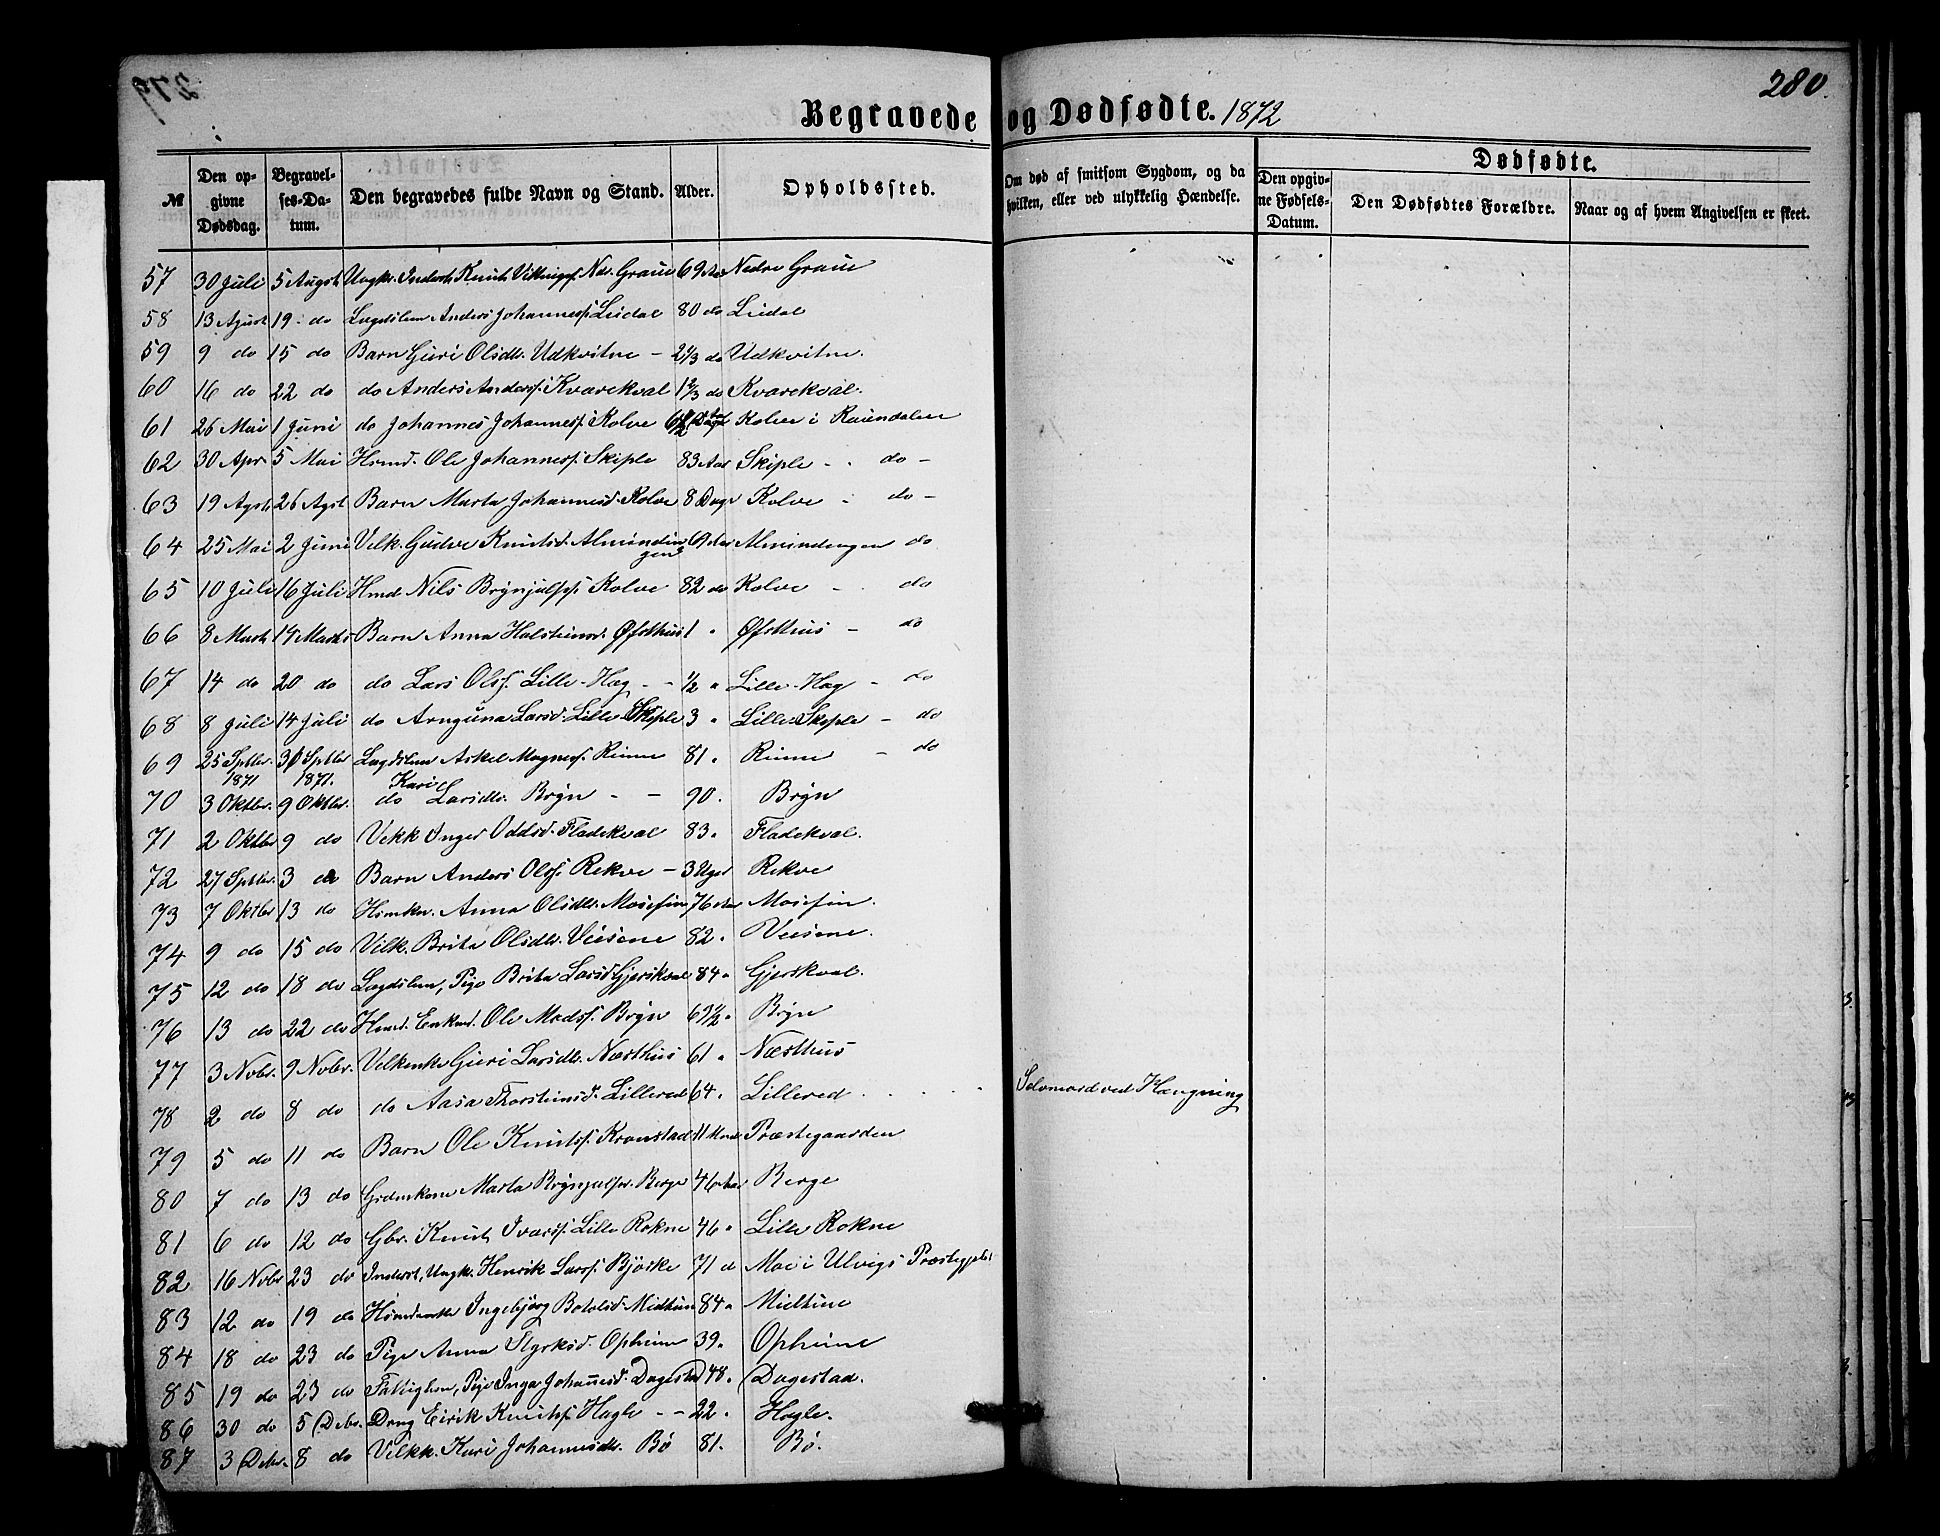 280.
Begravede og Dødfødte. 1872
Dødfødte.
№ Den opgivne Dødsdag. Begravelses-Datum. Den begravedes fulde Navn og Stand. Alder. Opholdssted. Om død af smitsom Sygdom, og da hvilken, eller ved ulykkelig Hændelse. Den opgivne Fødsels-Datum. Den Dødfødtes Forældre. Naar og af hvem Angivelsen er skeet.
57 30 Juli 5 Augst Ungk. Inderst Knut Vikingss. Ndr. Graue 69 Aar Nedre Graue
58 13 Agust 19 do Lægdslem Anders Johanness. Liidal 80 do Liidal
59 9 do 15 do Barn Guri Olsdtr. Udkvitne - 2 1/3 do Udkvitne.
60 16 do 22 do do Anders Anderss. Kvarekval 1 2/3 do Kvarekval.
61 26 Mai 1 Juni do Johannes Johanness. Kolve 6 1/2 Kolve i Raundalen
62 30 Apr. 5 Mai Hsmd. Ole Johanness. Skiple 83 Aar Skiple - do -
63 19 Agst 26 Agst Barn Marta Johannesd. Kolve 8 Dage Kolve - do -
64 25 Mai 2 Juni Velk. Gudve Knutsd. Almindingen 69 Aar Almindingen do
65 10 Juli 16 Juli Hmd Nils Brynjulfss. Kolve 82 do Kolve - do
66 8 Marts 14 Marts Barn Anna Halsteinsd. Øfsthus 1 " Øfsthus - do
67 14 do 20 do do Lars Olss. Lille-Hæg - - 1/2 " Lille-Hæg - do
68 8 Juli 14 Juli do Arnguna Larsd. Lille Skiple 3 " Lille Skiple - do
69 25 Sptbr. 1871 30 Sptbr 1871. Lægdslem Askel Magness. Rinne 81 " Rinne - do
70 3 Oktbr. 9 Oktbr. do Kari Larsdtr. Bryn - - 90. Bryn
71 2 Oktbr 9 do Vekk Inger Oddsd. Fladekval 83. Fladekval.
72 27 Sptbr. 3 do Barn Anders Olss. Rekve - 3 Uger Rekve
73 7 Oktbr 13 do Hsmkn. Anna Olsdtr. Mosefin 76 Aar Mosefin.
74 9 do 15 do Vilk. Brita Olsdtr. Veisene 82. Veisene.
75 12 do 18 do Lægdslem, Pige Brita Larsd Gjerskval 84 " Gjerskval.
76 13 do 22 do Hsmd. Enkmd. Ole Madss. Bryn 69 1/2 " Bryn
77 3 Novbr. 9 Novbr. Velkenke Guri Larsdtr. Næsthus 61 " Næsthus
78 2 do 8 do do Aasa Thorsteinsd. Lillered 64. Lillered . . . . Selvmord ved Hængning
79 5 do 11 do Barn Ole Knutss. Kronstad 11 Mnd Præstegaarden
80 7 do 13 do Grdmkone Marta Brynjulfsd. Berge 46 Aar Berge
81 6 do 12 do Gbr. Knut Ivarss. Lille Rokne 46 " Lille Rokne
82 16 Novbr 23 do Inderst, Ungk. Henrik Larss. Bjørke 71 d Mo i Ulvigs Præstegjeld
83 12 do 19 do Hsmdsenke Ingebjørg Botolsd. Midtun 84 " Midtune
84 18 do 23 do Pige Anna Styrksd. Opheim 39. Opheim
85 19 do 23 do Fattiglem, Pige Inga Johannesd. Dagestad 48. Dagestad.
86 30 do 5 Debr. Dreng Eirik Knutss. Hagle - - 22. Hagle.
87 3 Debr. 8 do Velkk. Kari Johannesdtr. Bø 81. Bø.